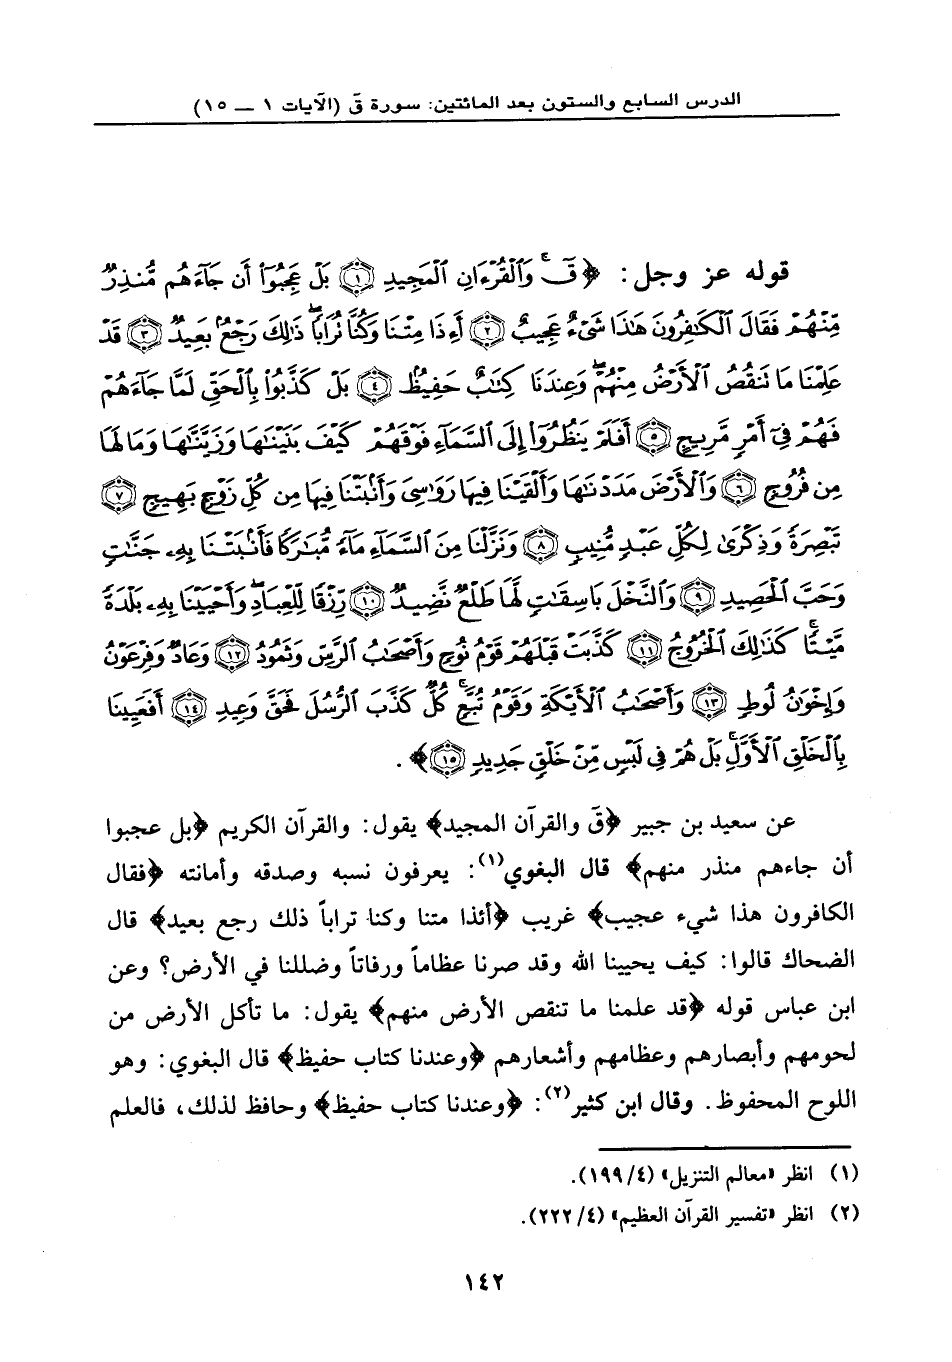 الدرس السابع والستون بعد المائتين: سورة قَ (الآيات ١ ــ ١٥)
قوله عز وجل: ﴿قٓ ۚ وَٱلْقُرْءَانِ ٱلْمَجِيدِ ۝١ بَلْ عَجِبُوٓا۟ أَن جَآءَهُم مُّنذِرٌ
مِّنْهُمْ فَقَالَ ٱلْكَٰفِرُونَ هَٰذَا شَىْءٌ عَجِيبٌ ۝٢ أَءِذَا مِتْنَا وَكُنَّا تُرَابًا ۖ ذَٰلِكَ رَجْعٌۢ بَعِيدٌ ۝٣ قَدْ
عَلِمْنَا مَا تَنقُصُ ٱلْأَرْضُ مِنْهُمْ ۖ وَعِندَنَا كِتَٰبٌ حَفِيظٌۢ ۝٤ بَلْ كَذَّبُوا۟ بِٱلْحَقِّ لَمَّا جَآءَهُمْ
فَهُمْ فِىٓ أَمْرٍ مَّرِيجٍ ۝٥ أَفَلَمْ يَنظُرُوٓا۟ إِلَى ٱلسَّمَآءِ فَوْقَهُمْ كَيْفَ بَنَيْنَٰهَا وَزَيَّنَّٰهَا وَمَا لَهَا
مِن فُرُوجٍ ۝٦ وَٱلْأَرْضَ مَدَدْنَٰهَا وَأَلْقَيْنَا فِيهَا رَوَٰسِىَ وَأَنۢبَتْنَا فِيهَا مِن كُلِّ زَوْجٍۭ بَهِيجٍ ۝٧
تَبْصِرَةً وَذِكْرَىٰ لِكُلِّ عَبْدٍ مُّنِيبٍ ۝٨ وَنَزَّلْنَا مِنَ ٱلسَّمَآءِ مَآءً مُّبَٰرَكًا فَأَنۢبَتْنَا بِهِۦ جَنَّٰتٍ
وَحَبَّ ٱلْحَصِيدِ ۝٩ وَٱلنَّخْلَ بَاسِقَٰتٍ لَّهَا طَلْعٌ نَّضِيدٌ ۝١٠ رِّزْقًا لِّلْعِبَادِ ۖ وَأَحْيَيْنَا بِهِۦ بَلْدَةً
مَّيْتًا ۚ كَذَٰلِكَ ٱلْخُرُوجُ ۝١١ كَذَّبَتْ قَبْلَهُمْ قَوْمُ نُوحٍ وَأَصْحَٰبُ ٱلرَّسِّ وَثَمُودُ ۝١٢ وَعَادٌ وَفِرْعَوْنُ
وَإِخْوَٰنُ لُوطٍ ۝١٣ وَأَصْحَٰبُ ٱلْأَيْكَةِ وَقَوْمُ تُبَّعٍ ۚ كُلٌّ كَذَّبَ ٱلرُّسُلَ فَحَقَّ وَعِيدِ ۝١٤ أَفَعَيِينَا
بِٱلْخَلْقِ ٱلْأَوَّلِ ۚ بَلْ هُمْ فِى لَبْسٍ مِّنْ خَلْقٍ جَدِيدٍ ۝١٥﴾ .
عن سعيد بن جبير ﴿قَ والقرآن المجيد﴾ يقول: والقرآن الكريم ﴿بل عجبوا
أن جاءهم منذر منهم﴾ قال البغوي(١): يعرفون نسبه وصدقه وأمانته ﴿فقال
الكافرون هذا شيء عجيب﴾ غريب ﴿أئذا متنا وكنا تراباً ذلك رجع بعيد﴾ قال
الضحاك قالوا: كيف يحيينا الله وقد صرنا عظاماً ورفاتاً وضللنا في الأرض؟ وعن
ابن عباس قوله ﴿قد علمنا ما تنقص الأرض منهم﴾ يقول: ما تأكل الأرض من
لحومهم وأبصارهم وعظامهم وأشعارهم ﴿وعندنا كتاب حفيظ﴾ قال البغوي: وهو
اللوح المحفوظ. وقال ابن كثير(٢): ﴿وعندنا كتاب حفيظ﴾ وحافظ لذلك، فالعلم
(١) انظر «معالم التنزيل» (٤/١٩٩).
(٢) انظر «تفسير القرآن العظيم» (٤/٢٢٢).
١٤٢